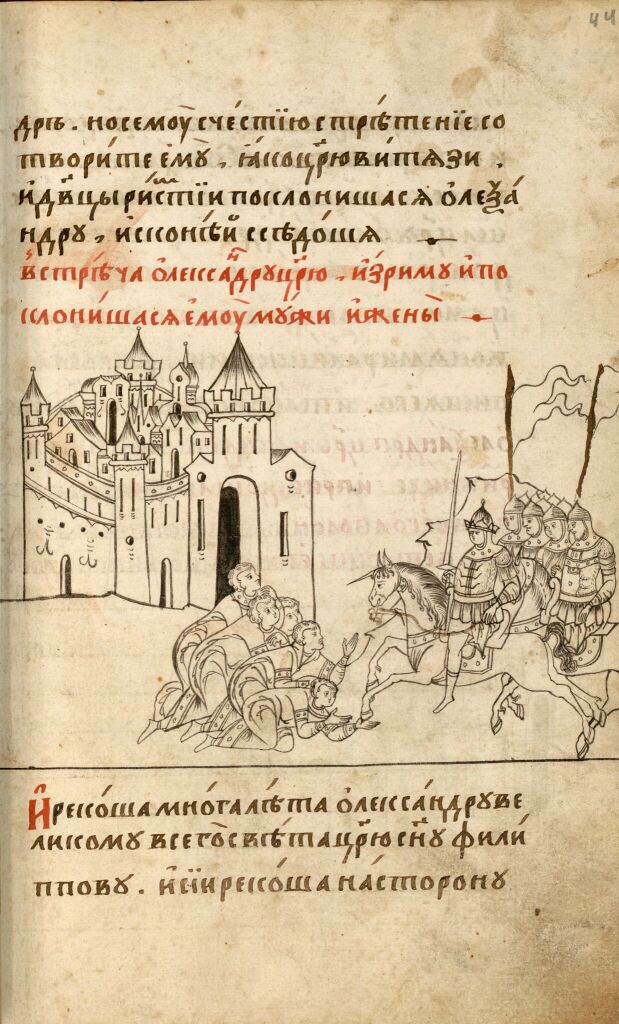 44
дрѣ. но семоу̀ с че́стїю стрѣ́тенїе со
твори́те ѐмꙋ̀, ꙗ҆́ко цр҃ю. ви́тѧзи.
и҆ дв҃цы ри́мстїи поклони́шасѧ о҆леѯа́
ндрꙋ, и҆ с коне́й ссѣдо́шѧ
встрѣ́ча о҆леѯа́ндрꙋ цр҃ю. и҆з̾ ри́мꙋ и҆ по
клони́шасѧ е҆моу̀ мꙋ́жи и҆ жены̀
И҆ реко́ша мно́га лѣ́та о҆лекса́ндрꙋ ве
ликомꙋ всего̀ свѣ́та цр҃ю сн҃ꙋ фили́
пповꙋ. и҆ні́и реко́ша на́ сторонꙋ